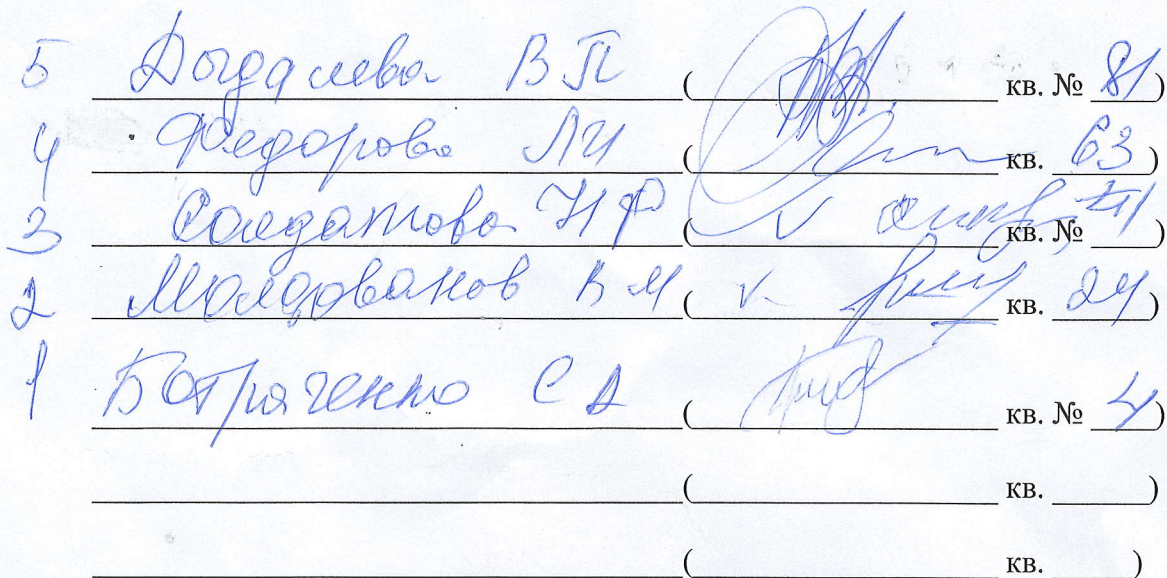 5 Догдалева В П ( кв. № 81 )
4 Федорова Л И ( кв. 63 )
3 Солдатова Н Ф ( кв. № )
2 Молдованов В М ( кв. 24 )
1 Ботраченко С А ( кв. № 4 )
( кв. )
( кв. )